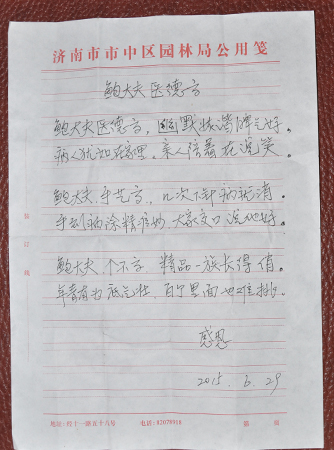 济南市市中区园林局公用笺
鲍大夫医德高
鲍大夫医德高，幽默技高脾气好。
病人犹如在家里，亲人信着在说笑。
鲍大夫手艺高，几次下针病就消
手到病除精准妙，大家交口说他好。
鲍大夫个不高，精品一族长得
年青有为底气壮，百里里面也难挑。
感恩
2015.6.29
装订线
地址：经十一路五十八号 电话：82078916 第 页